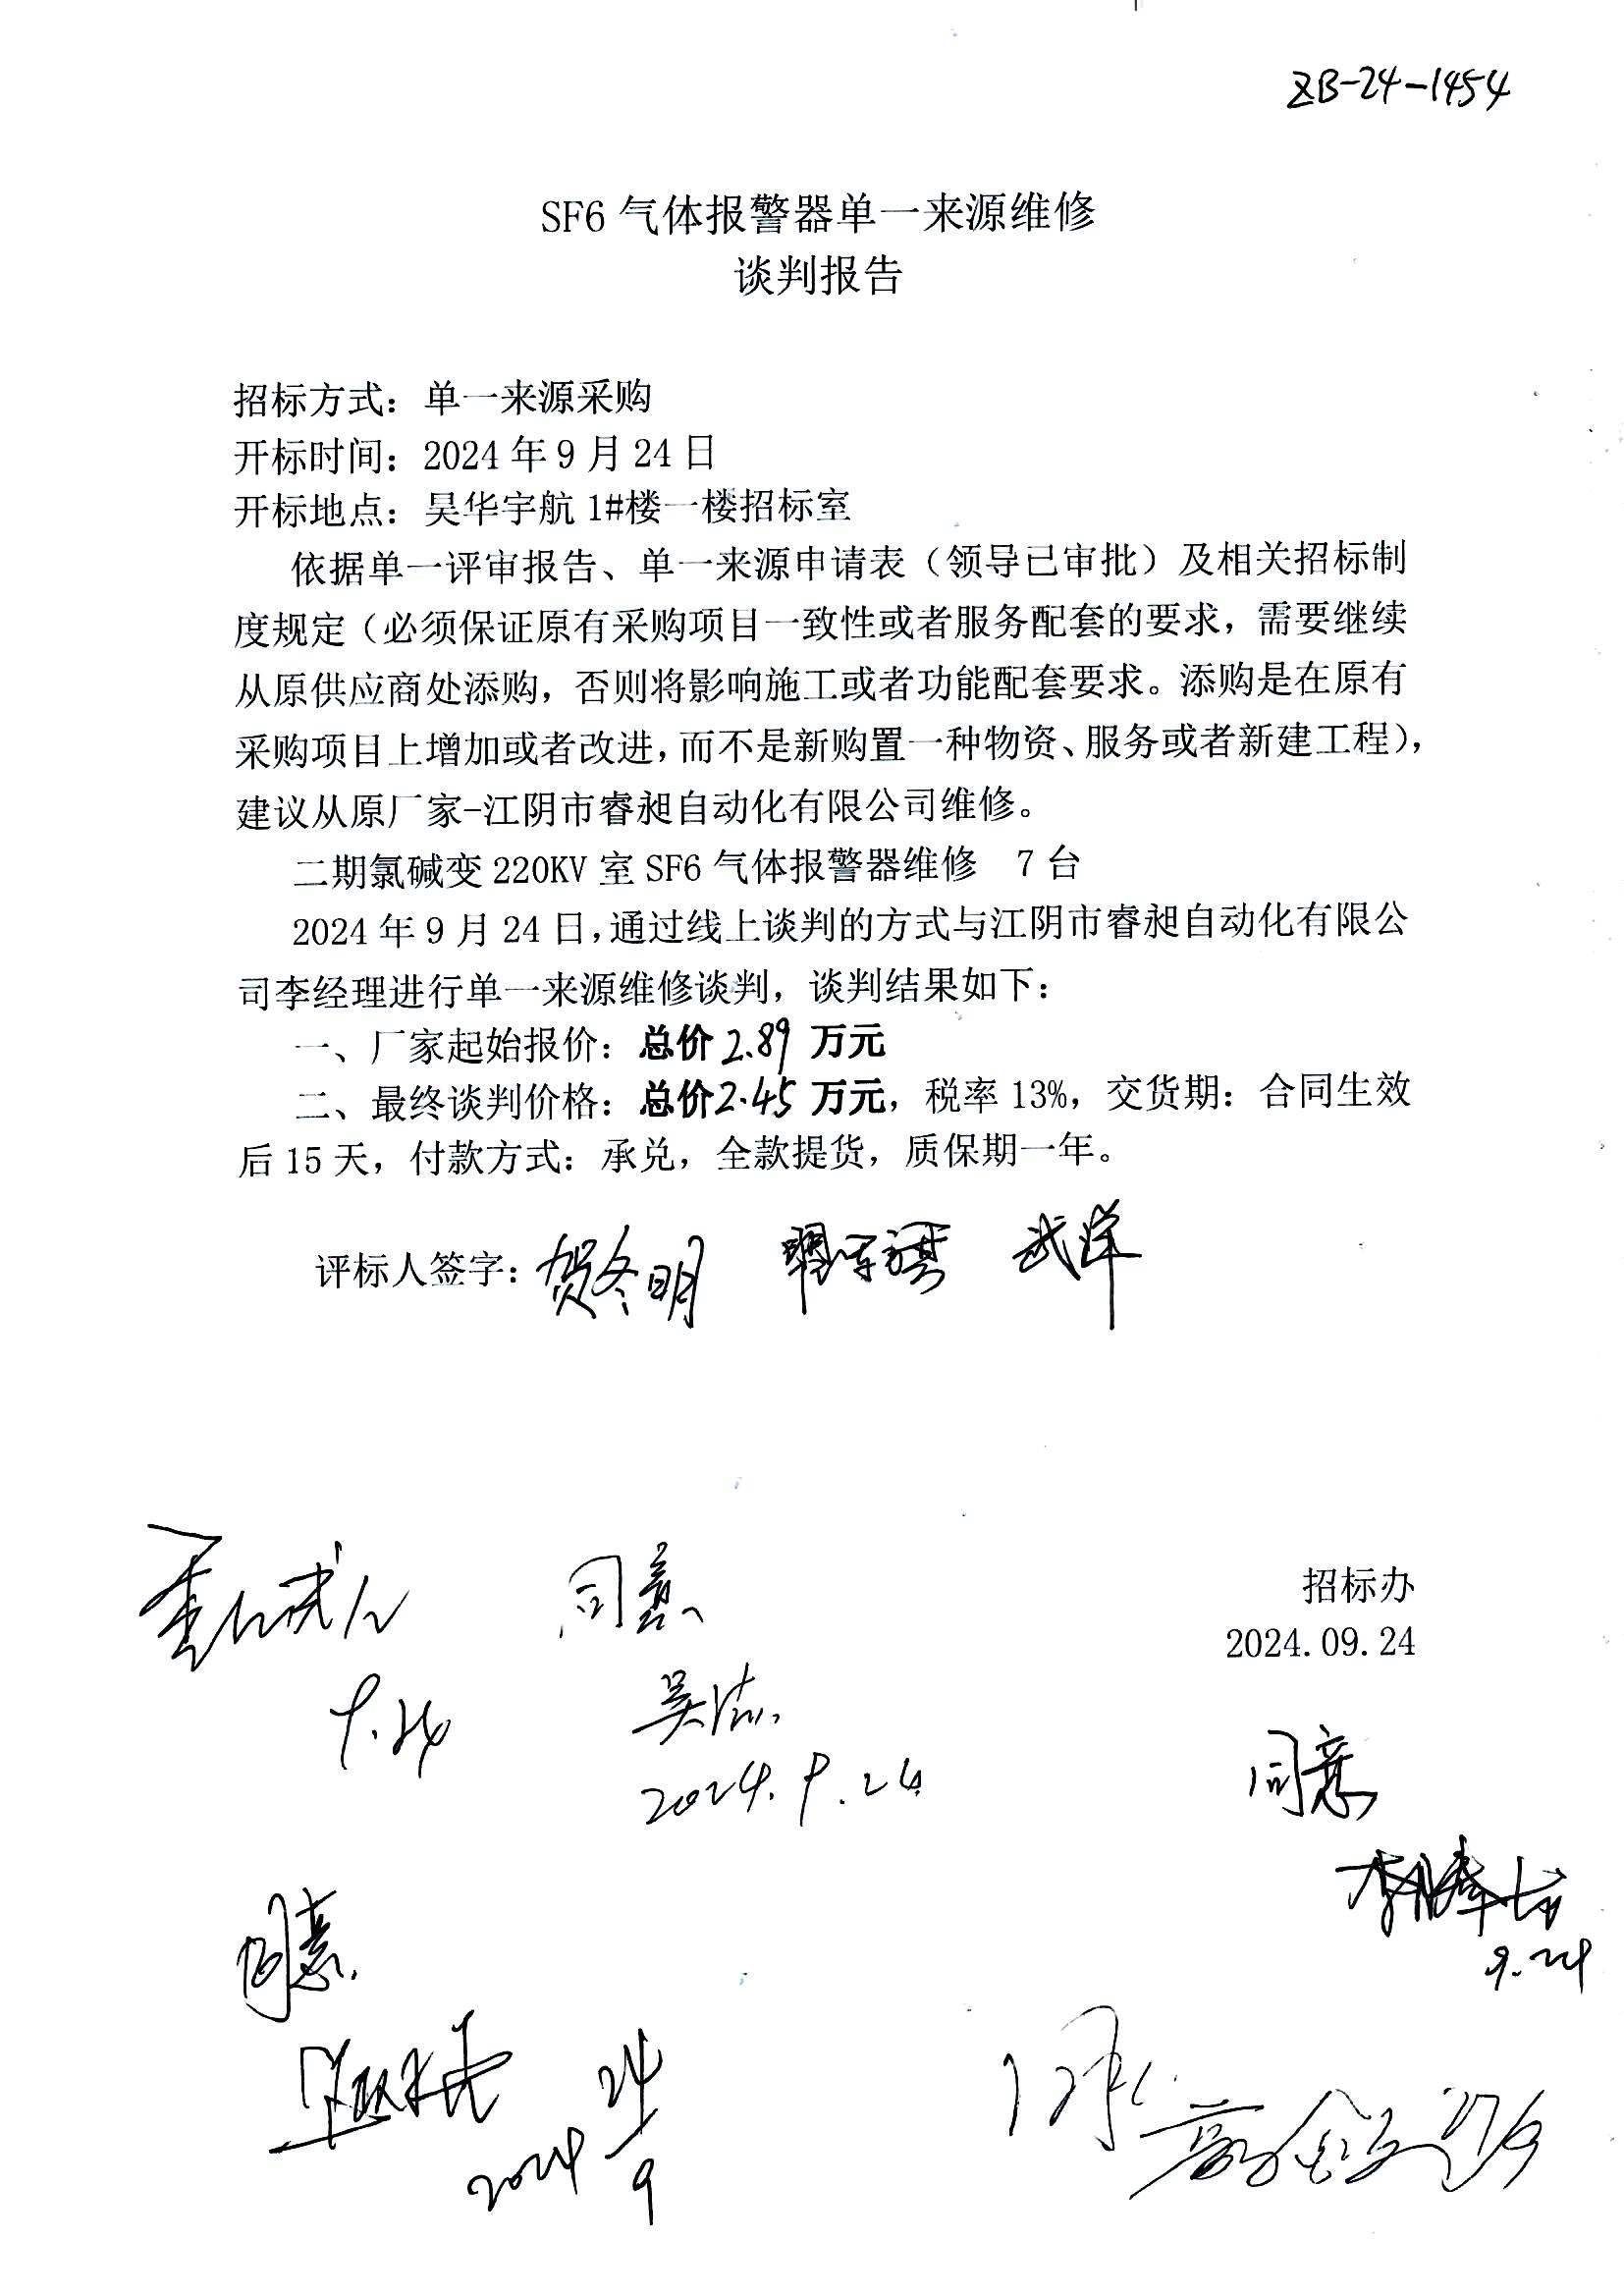 ZB-24-1454
SF6 气体报警器单一来源维修
谈判报告
招标方式：单一来源采购
开标时间：2024 年 9 月 24 日
开标地点：昊华宇航 1#楼一楼招标室
依据单一评审报告、单一来源申请表（领导已审批）及相关招标制
度规定（必须保证原有采购项目一致性或者服务配套的要求，需要继续
从原供应商处添购，否则将影响施工或者功能配套要求。添购是在原有
采购项目上增加或者改进，而不是新购置一种物资、服务或者新建工程），
建议从原厂家-江阴市睿昶自动化有限公司维修。
二期氯碱变 220KV 室 SF6 气体报警器维修　7 台
2024 年 9 月 24 日，通过线上谈判的方式与江阴市睿昶自动化有限公
司李经理进行单一来源维修谈判，谈判结果如下：
一、厂家起始报价：总价 2.89 万元
二、最终谈判价格：总价2.45 万元，税率 13%，交货期：合同生效
后 15 天，付款方式：承兑，全款提货，质保期一年。
评标人签字：贺冬明 武洋
招标办
2024.09.24
同意
9.24
2024.9.24
同意
9.24
同意
2024 24/9